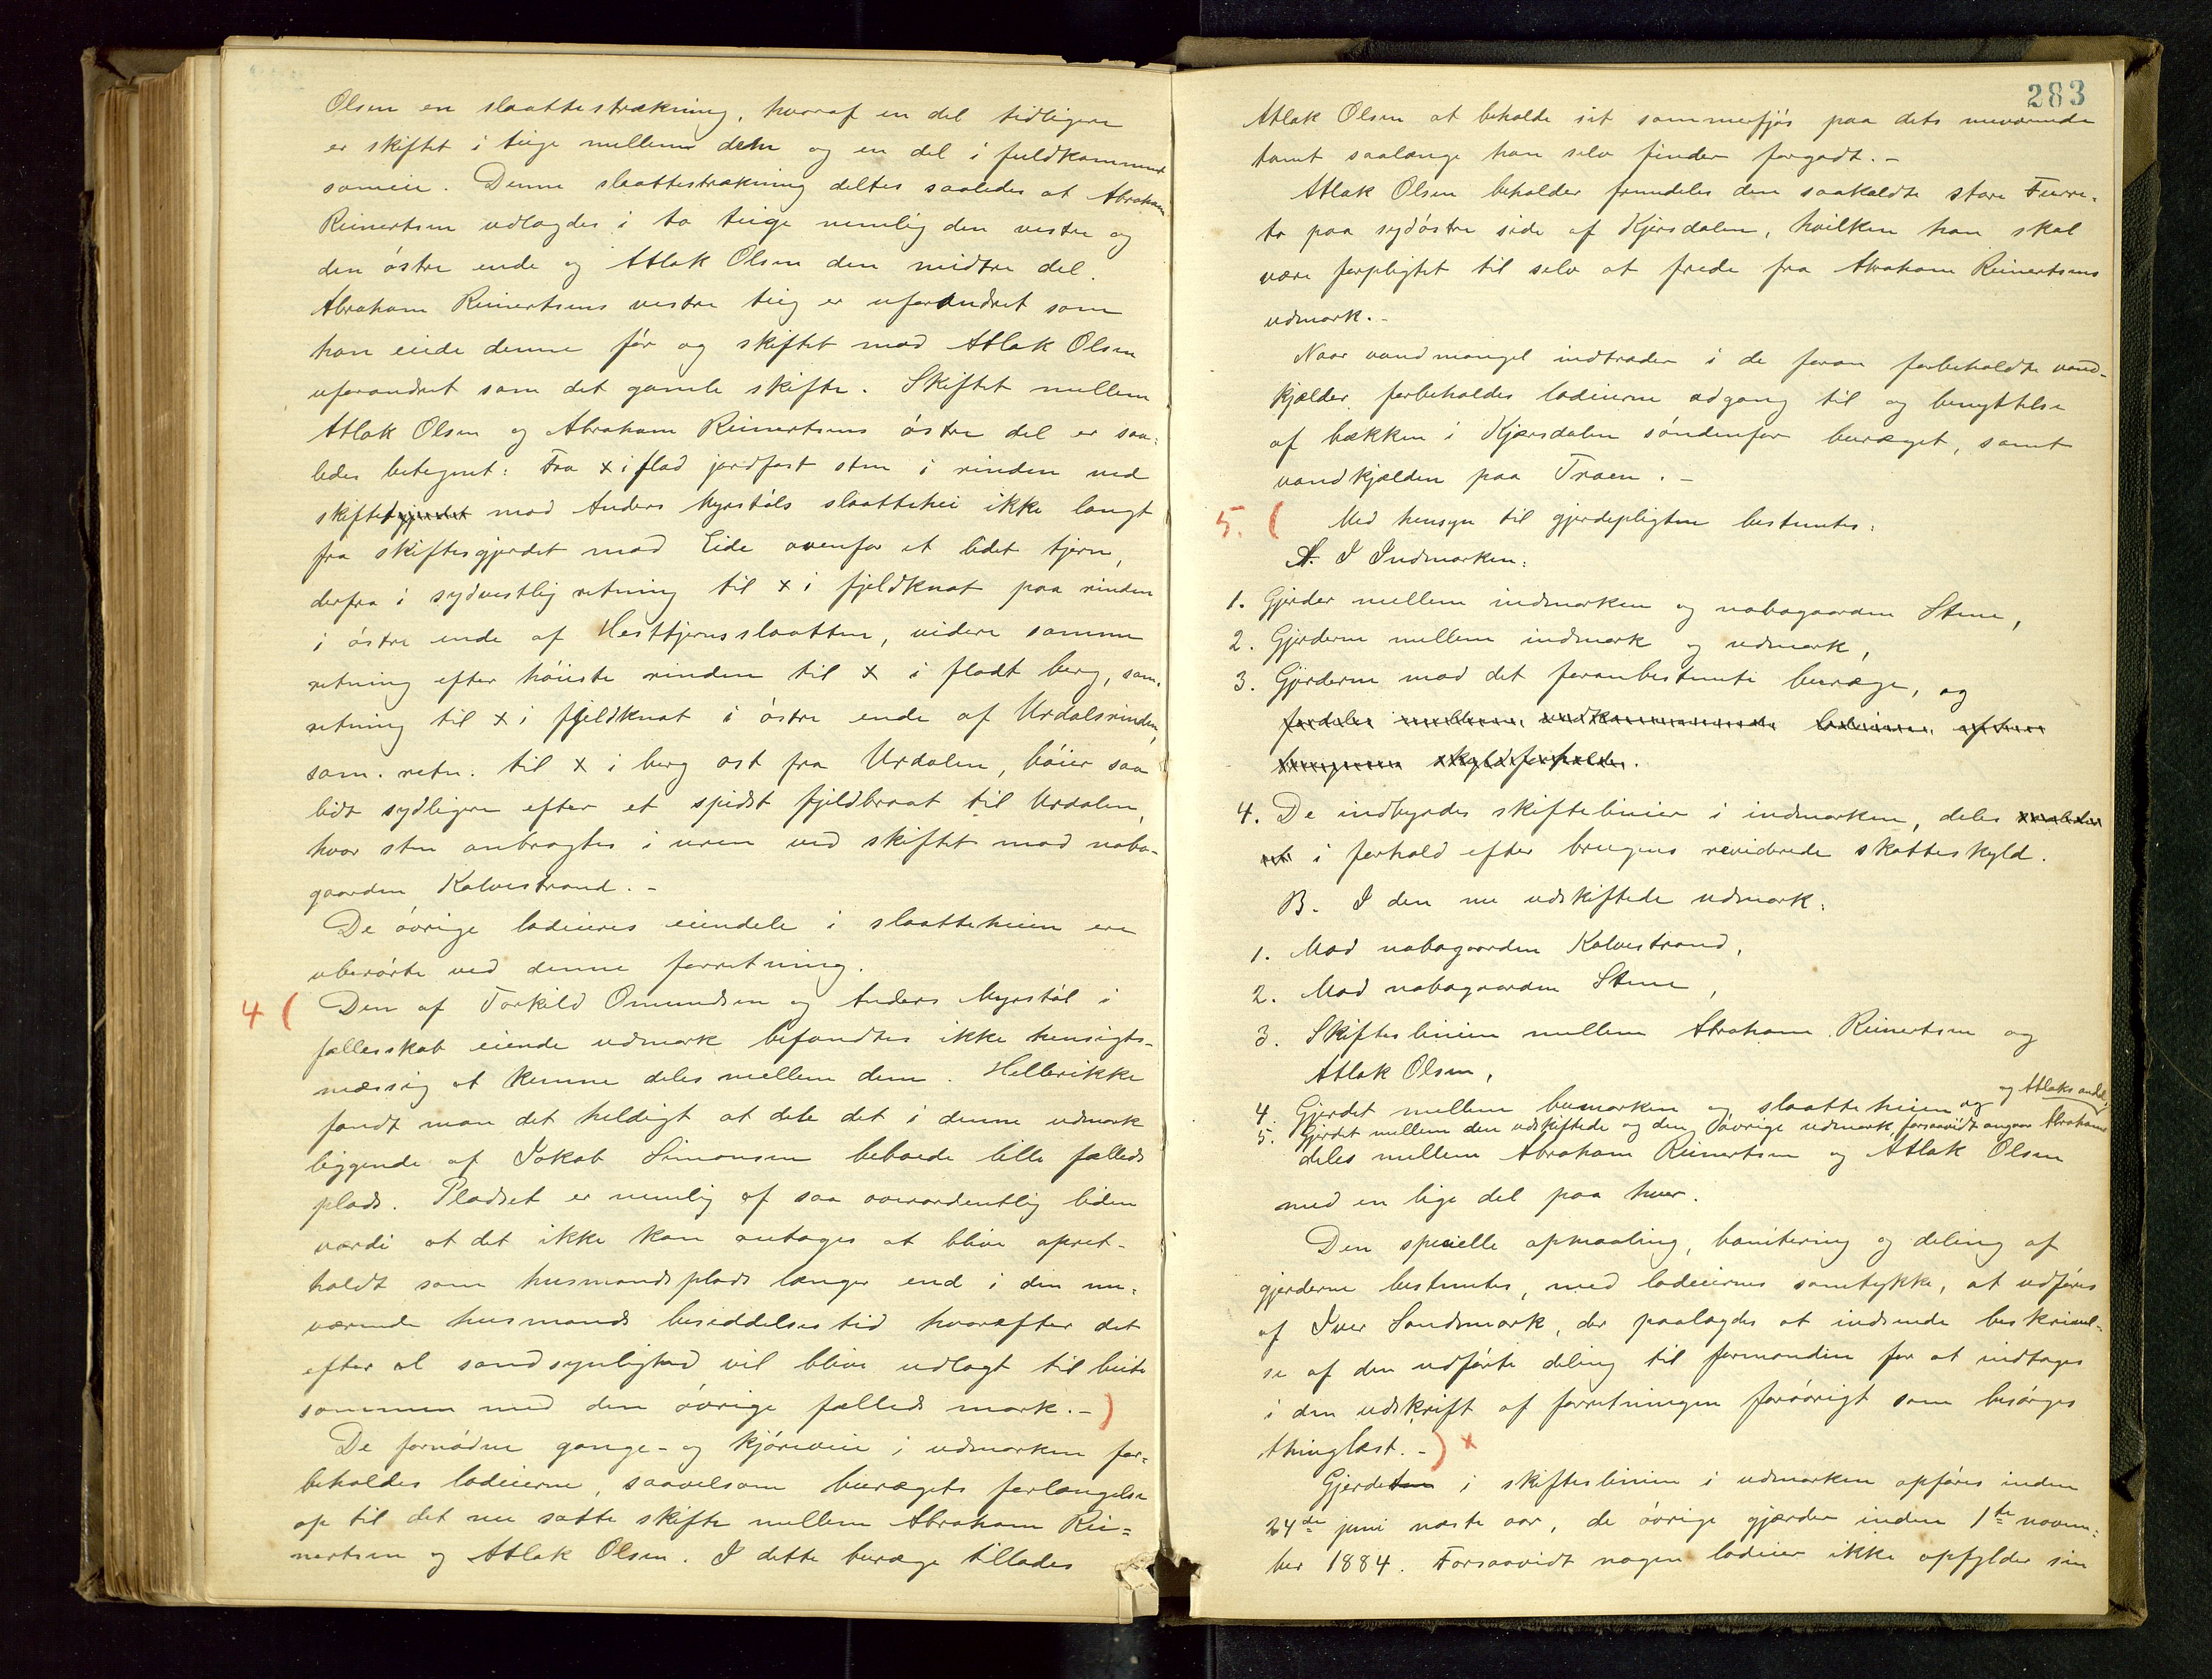 Olsen en slaattestrækning, hvoraf en del tidligere
er skiftet i teige mellem dem og en del i fuldkomment
sameie. Denne slaattestrækning deltes saaledes at Abraham
Reinertsen udlagdes i to teige nemlig den vestre og
den östre ende og Atlak Olsen den midtre del.
Abraham Reinertsens vestre teig er uforandret som
han eiede denne för og skiftet mod Atlak Olsen
uforandret som det gamle skifte. Skiftet mellem
Atlak Olsen og Abraham Reinertsens östre del er saa-
ledes betegnet: Fra x i flad jordfast sten i rinden ved
skiftet gjerdet mod Anders Myrstöls slaattehei ikke langt
fra skiftesgjerdet mod Eide ovenfor et lidet tjern,
derfra i sydvestlig retning til x i fjeldknat paa rinden
i östre ende af Hesttjernsslaatten, videre samme
retning efter höieste rinden til x i fladt berg, sam.
retning til x i fjeldknat i östre ende af Urdalsrinden,
sam. retn. til x i berg ost fra Urdalen, böier saa
lidt sydligere efter et spidst fjeldbraat til Urdalen,
hvor sten anbragtes i uren ved skiftet mod nabo-
gaarden Kalvestrand. -
De övrige lodeieres eiendele i slaatteheien ere
uberörte ved denne forretning.
4 ( Den af Torkild Omundsen og Anders Myrstöl i
fællesskab eiende udmark befandtes ikke hensigts-
mæssig at kunne deles mellem dem. Hellerikke
fandt man det heldigt at dele det i denne udmark
liggende af Jakob Simonsen beboede lille fælleds
plads. Pladset er nemlig af saa overordentlig liden
værdi at det ikke kan antages at blive opret-
holdt som husmandsplads længer end i den nu-
værende husmands besiddelsestid hvorefter det
efter al sandsynlighed vil blive udlagt til beite
sammen med den övrige fælleds mark. - )
De fornödne gange- og kjöreveie i udmarken for-
beholdes lodeierne, saavelsom burægets forlængelse
op til det nu satte skifte mellem Abraham Rei-
nertsen og Atlak Olsen. I dette buræge tillades
283
Atlak Olsen at beholde sit sommerfjös paa dets nuværende
tomt saalænge han selv finder forgodt. -
Atlak Olsen beholder fremdeles den saakaldte store Furre-
to paa sydöstre side af Kjersdalen, hvilken han skal
være forpligtet til selv at frede fra Abraham Reinertsens
udmark. -
Naar vandmangel indtræder i de foran forbeholdte vand-
kjælder forbeholdes lodeierne adgang til og benyttelse
af bækken i Kjærsdalen söndenfor buræget, samt
vandkjælden paa Traen. -
5. ( Med hensyn til gjerdepligten bestemtes:
A. I Indmarken:
1. Gjerder mellem indmarken og nabogaarden Stene,
2. Gjerderne mellem indmark og udmark,
3. Gjerderne mod det foranbestemte buræge, og
fordeles mellem vedkommende lodeiere efter
brugenes skyldforholde.
4. De indbyrdes skiftelinier i indmarken, deles
i forhold efter brugens reviderede skatteskyld.
B. I den nu udskiftede udmark:
1. Mod nabogaarden Kalvestrand,
2. Mod nabogaarden Stene,
3. Skifteslinien mellem Abraham Reinertsen og
Atlak Olsen,
4. Gjerdet mellem bumarken og slaatteheien og
5. Gjerdet mellem den udskiftede og den övrige udmark, forsaavidt angaar Abrahams
og Atlaks andel,
deles mellem Abraham Reinertsen og Atlak Olsen
med en lige del paa hver.
Den specielle opmaaling, bonitering og deling af
gjerderne bestemtes, med lodeiernes samtykke, at udföres
af Iver Sandsmark, der paalagdes at indsende beskrivel-
se af den udförte deling til formanden for at indtages
i den udskrift af forretningen forövrigt som besörges
thinglæst. - ) x
Gjerdet i skifteslinien i udmarken opföres inden
24de juni næste aar, de övrige gjærder inden 1ste novem-
ber 1884. Forsaavidt nogen lodeier ikke opfylder sin